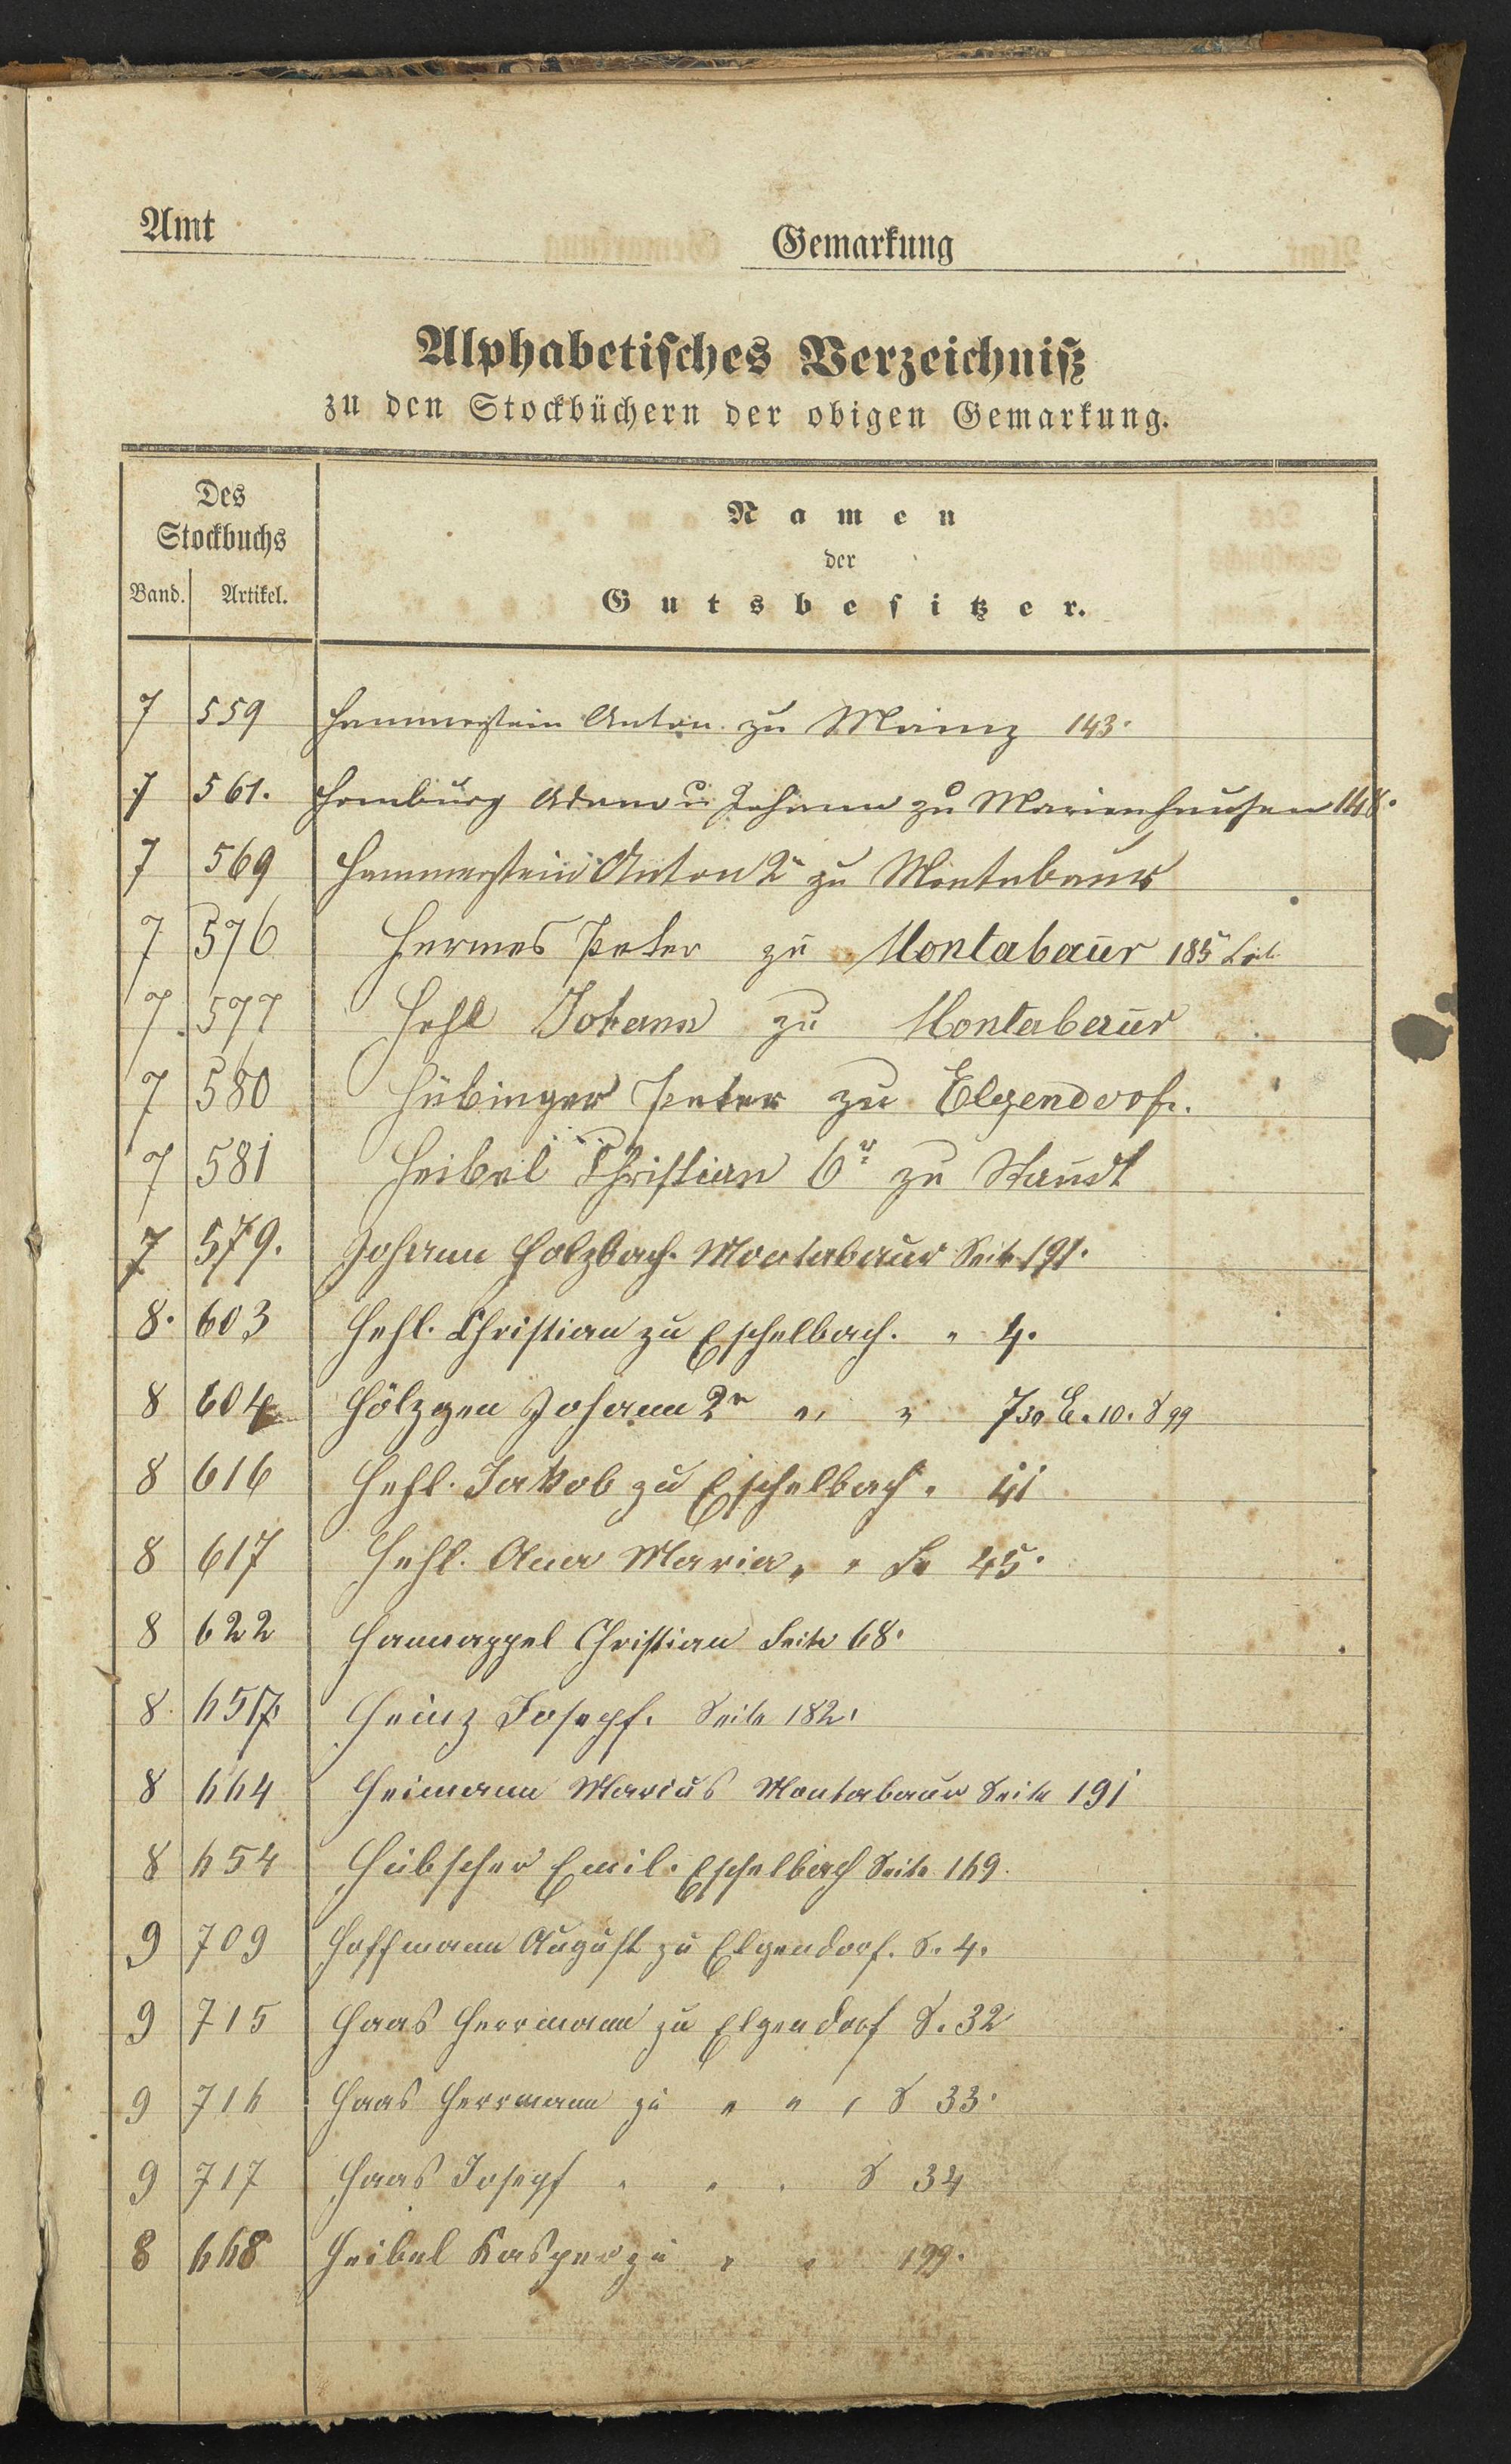 Amt
Gemarkung
Alphabetisches Verzeichniß
zu den Stockbüchern der obigen Gemarkung.
Des
Stockbuchs
Band. Artikel.
Namen
der
Gutsbesitzer.
7 559 Hammerstein Anton zu Mainz 143.
7 561. Homburg Adam u Johann zu Marienhausen 148.
7 569 Hammerstein Anton 2r zu Montabaur
7 576 Hermes Peter zu Montabaur 185
7. 577 Hehl Johann zu Montabaur
7 580 Hübinger Peter zu Elgendorf.
7 581 Heibel Christian 6r zu Staudt
7 579. Johann Holzbach. Montabaur Seite 191.
8. 603 Hehl. Christian zu Eschelbach. " 4.
8 604 Hölzgen Johann 2r " " 7 10. S 99
8 616 Hehl. Jakob zu Eschelbach. 41
8 617 Hehl. Anna Maria, " 45.
8 622 Hannappel Christian Seite 68.
8. 657. Heinz Joseph. Seite 182.
8 664 Heimann Marcus Montabaur Seite 191
8 654 Hübscher Emil. Eschelbach Seite 169.
9 709 Hoffmann August zu Elgendorf. S. 4.
9 715 Haas Herrmann zu Elgendorf S. 32
9 716 Haas Herrmann zu " " , S 33.
9 717 Haas Joseph " " " S 34
8 668 Heibel Kasper zu " " 199.